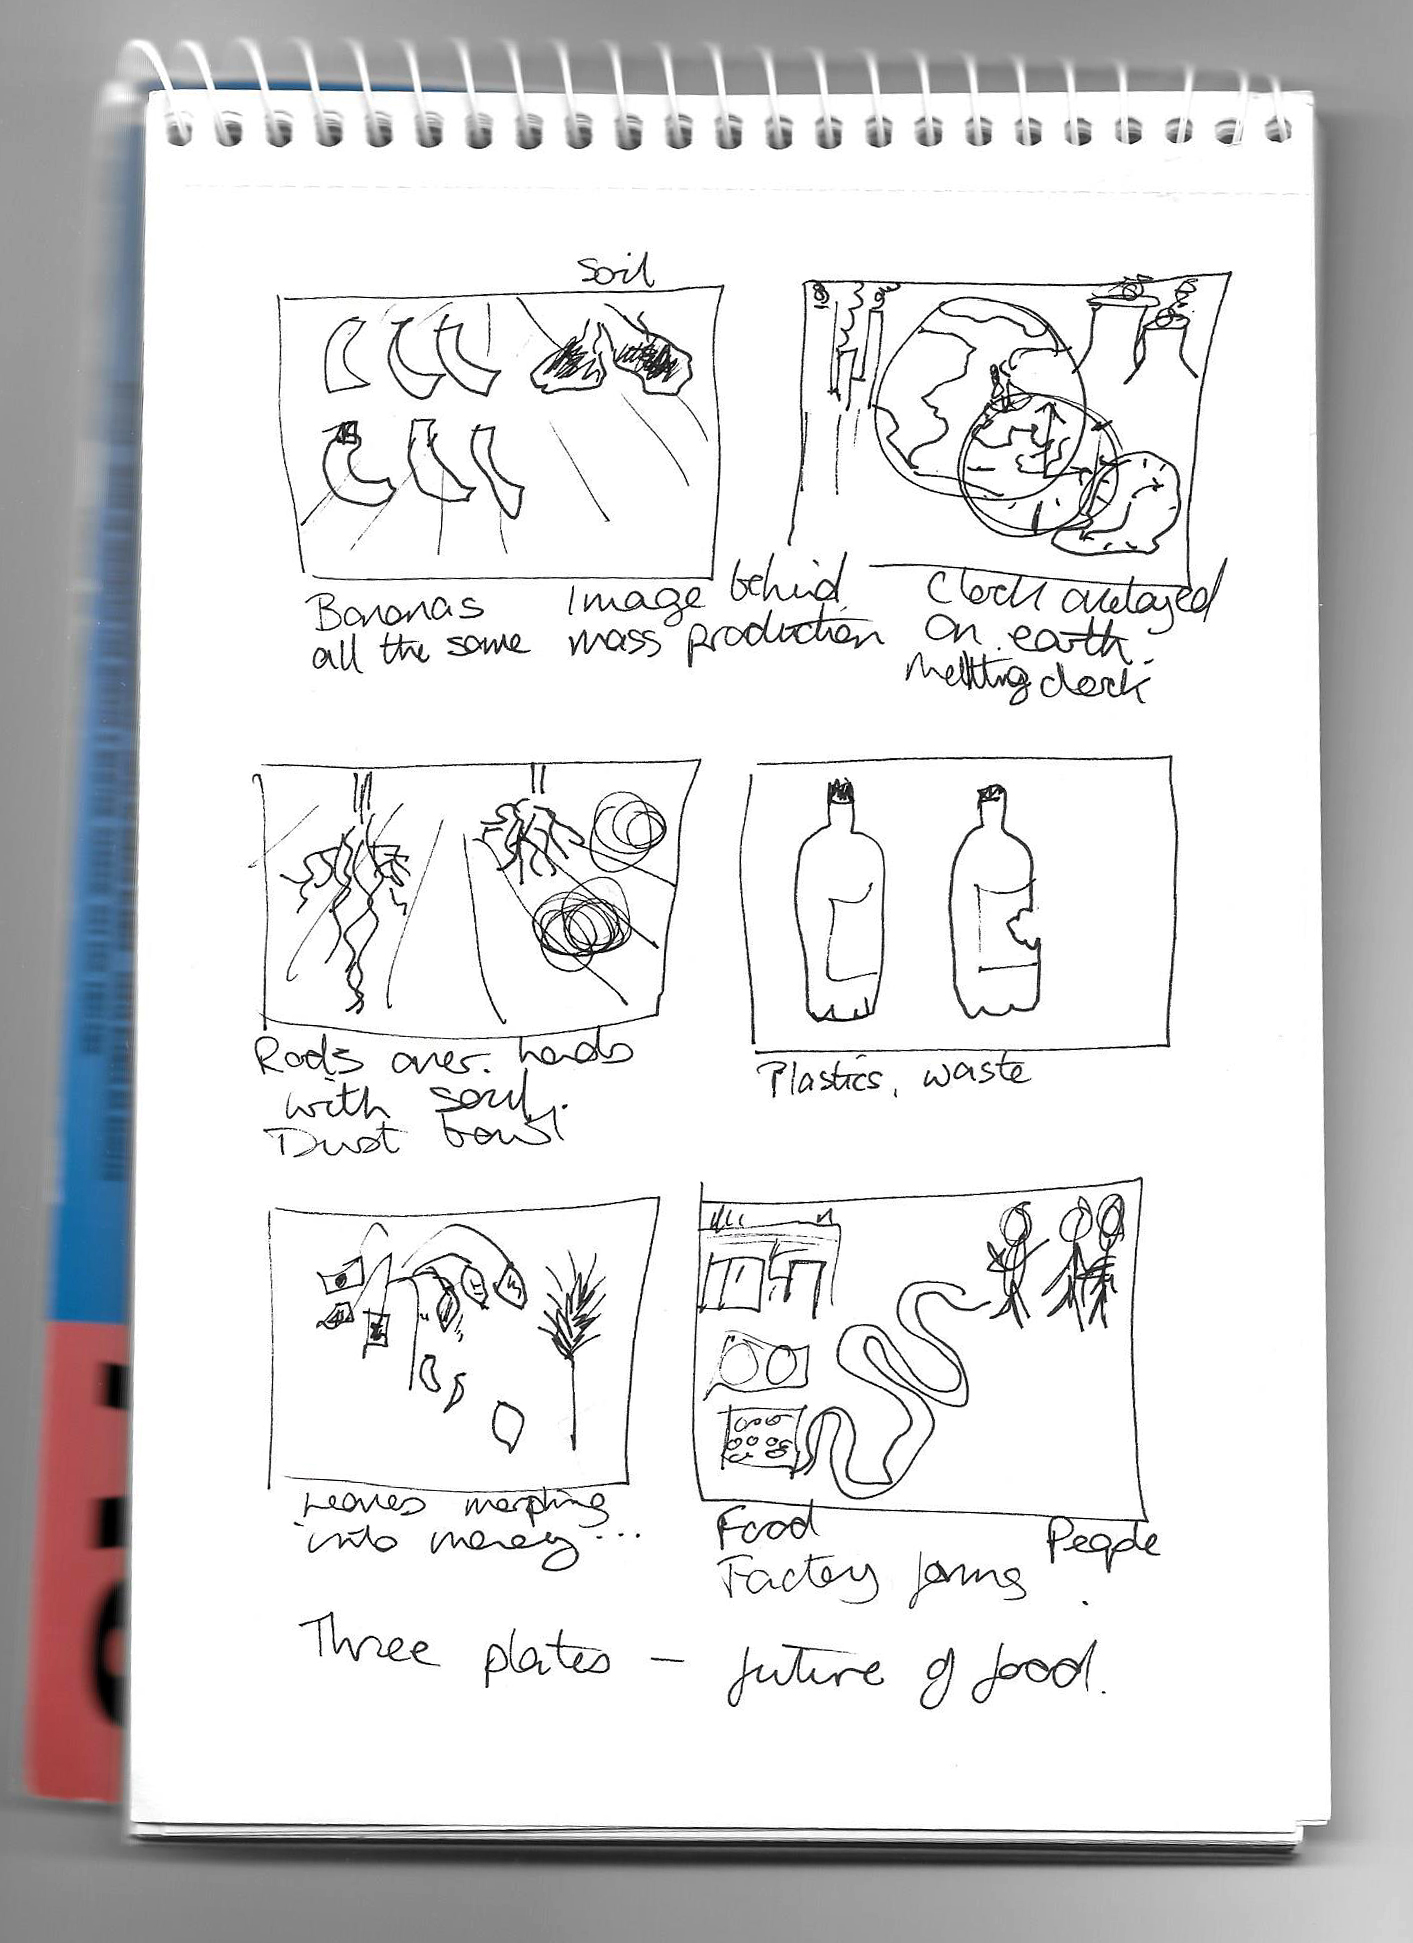 Soil
Bananas
all the same
Image behind
mass production
Clock overlayed
on earth.
Melting clock.
over. hands
with soil.
Dust bowl
Plastics, waste
Leaves morphing
into money...
Food
Factory farms
People
Three plates – future of food.